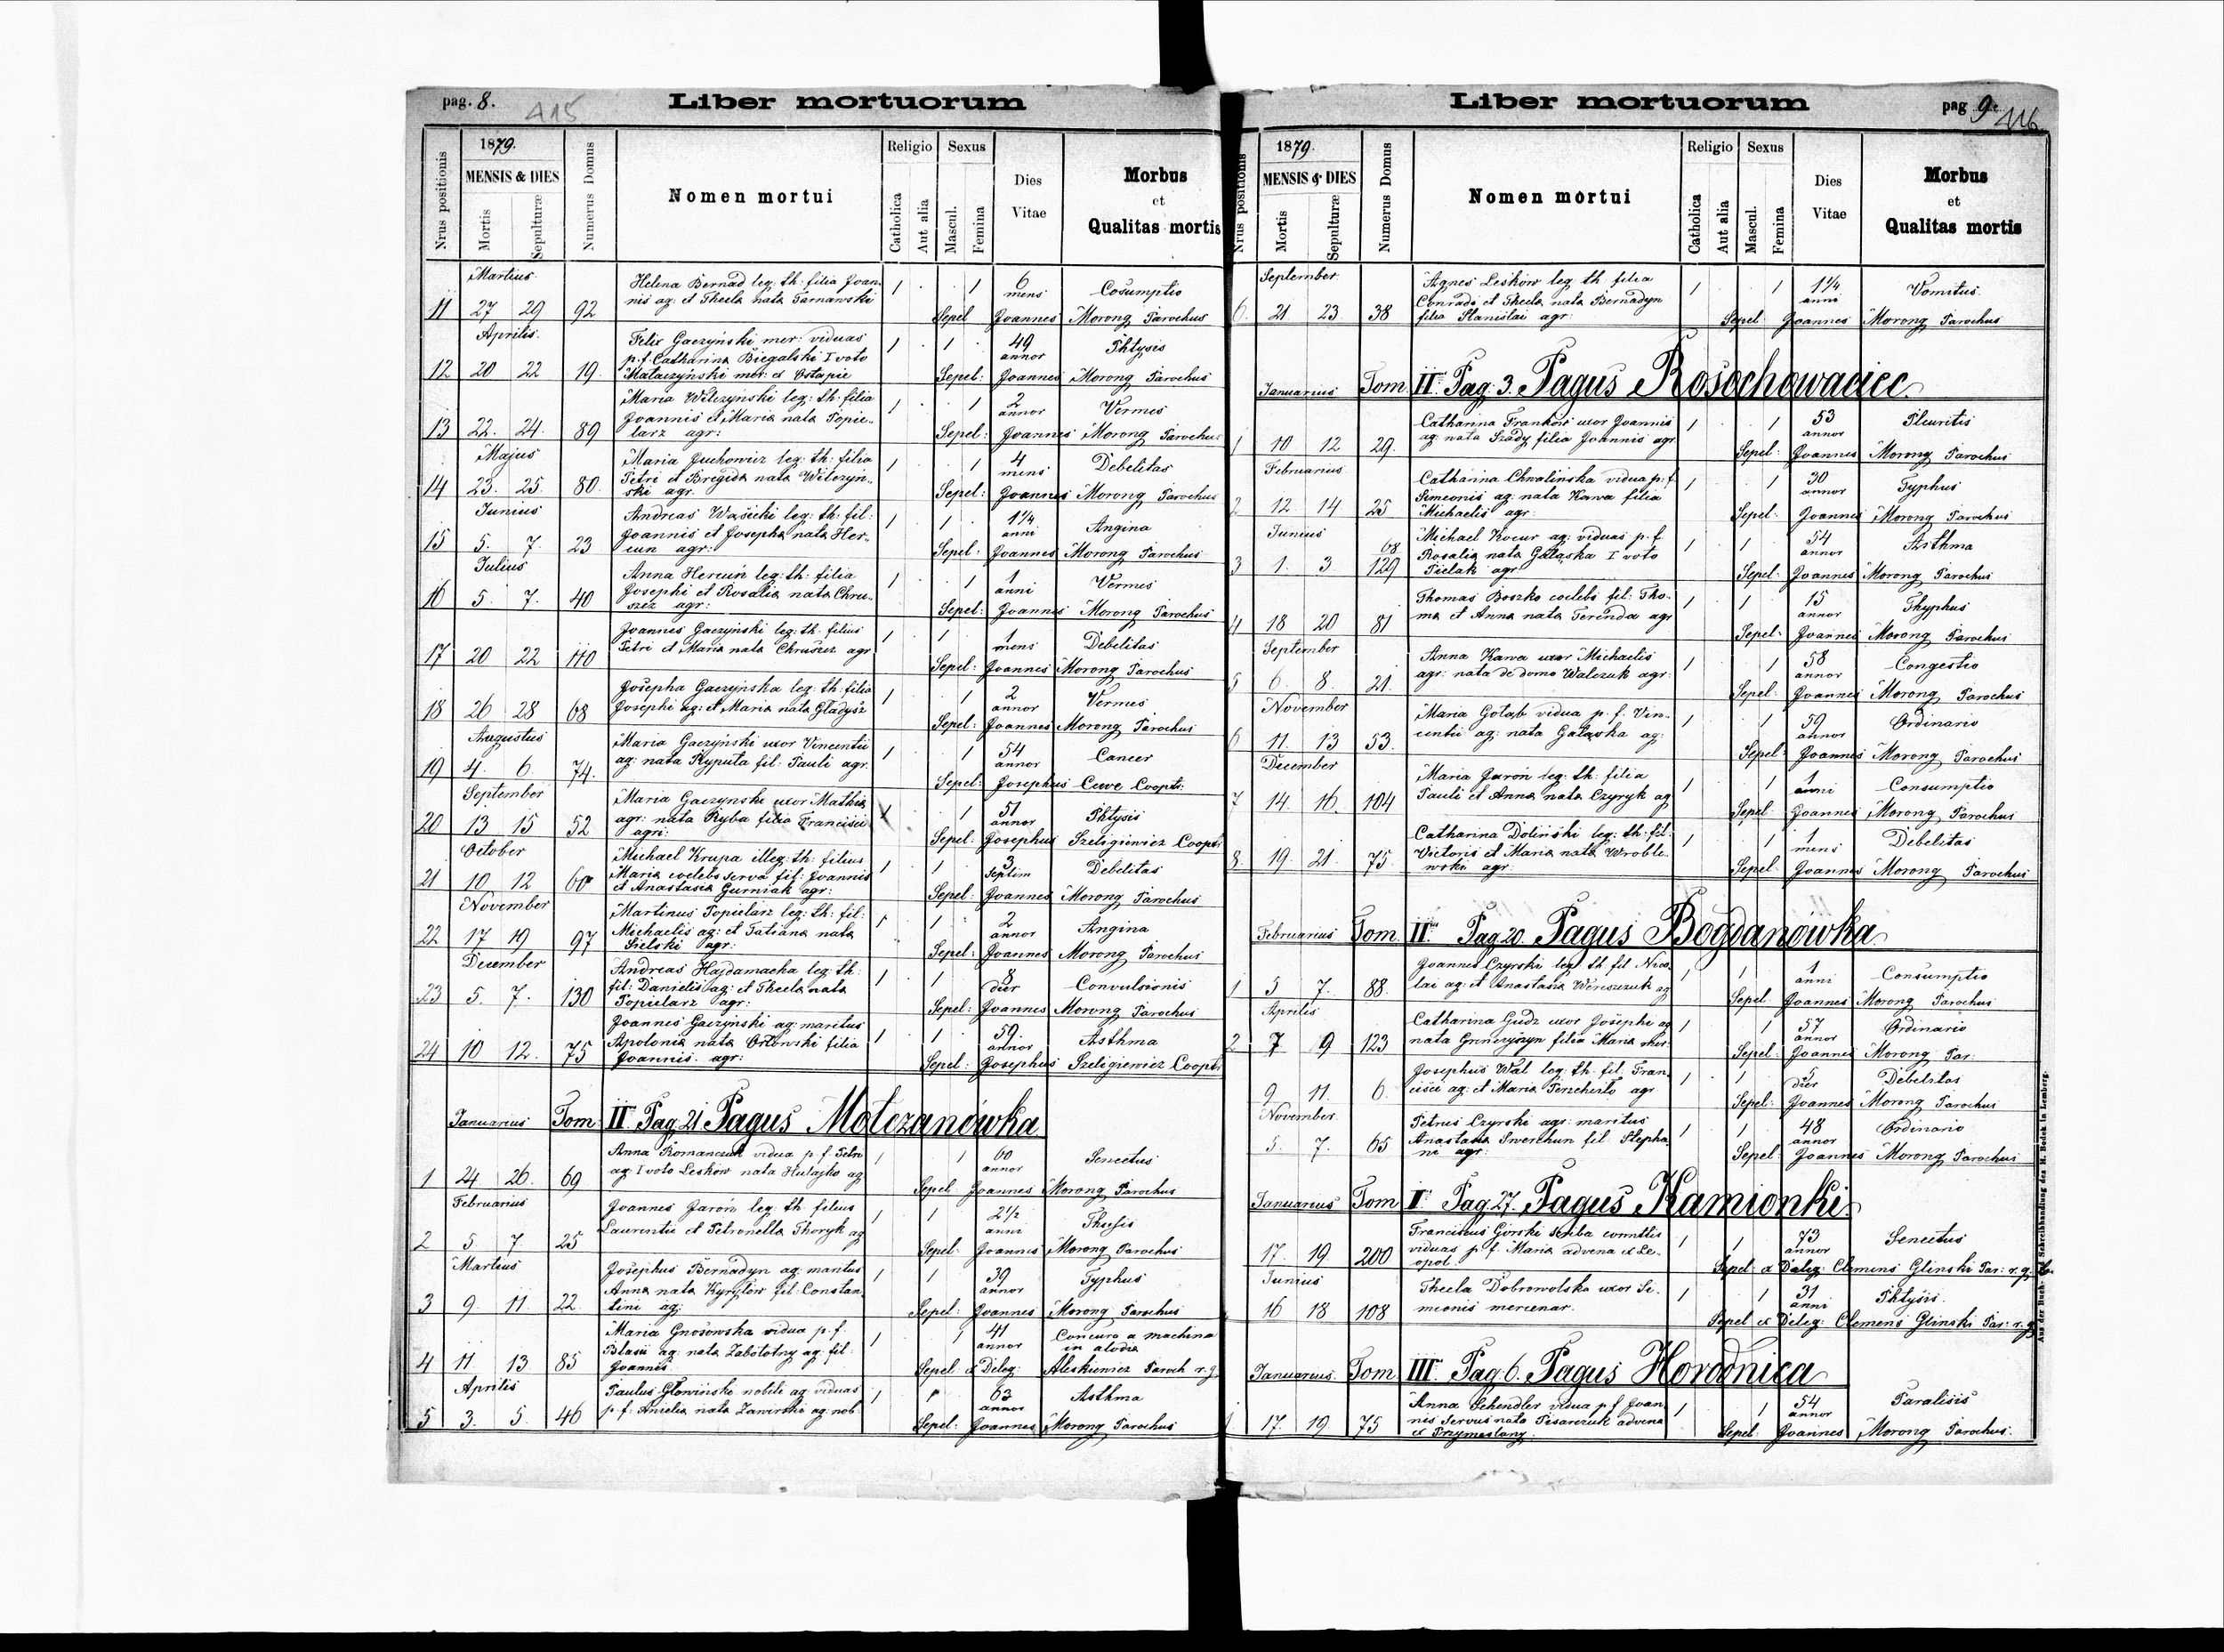 pag. 8.
415
Liber mortuorum
Nrus positionis
1879.
MENSIS & DIES
Mortis
Sepulturæ
Numerus Domus
Nomen mortui
Religio
Catholica
Aut alia
Sexus
Mascul.
Femina
Dies
Vitae
Morbus
et
Qualitas mortis
Martius
Helena Bernad leg. th. filia Joan-
nis ag: et Thecla nata Tarnawski
11 27 29 92 1 1 6 mens Cosumptio
Sepel Joannes Morong Parochus
Aprilis.
Felix Gaczyński mer: viduus
p. f. Catharina Biegalski I voto
Mataczyński mer: et Ostapie
12 20 22 19. 1 1 49 annor Phtysis
Sepel: Joannes Morong Parochus
Maria Wilczyński leg: th: filia
Joannis et Maria nata Popie-
larz agr:
13 22. 24. 89 1 1 2 annor Vermes
Sepel: Joannes Morong Parochus
Majus
Maria Juchowicz leg: th: filia
Petri et Bregida nata Wilczyn-
ski agr.
14 23. 25. 80. 1 1 4 mens Debelitas
Sepel: Joannes Morong Parochus
Junius
Andreas Wąsicki leg: th: fil:
Joannis et Josepha nata Her-
cun agr:
15 5. 7. 23 1 1 1 1/4 anni Angina
Sepel: Joannes Morong Parochus
Julius
Anna Hercuń leg: th: filia
Josephi et Rosalia nata Chru-
szcz agr:
16 5. 7. 40 1 1 1 anni Vermes
Sepel: Joannes Morong Parochus
Joannes Gaczyński leg: th: filius
Petri et Maria nata Chruszcz agr
17 20 22 110 1 1 1 mens Debelitas
Sepel: Joannes Morong Parochus
Josepha Gaczyńska leg: th: filia
Josephi ag: et Maria nata Gładysz
18 26 28 68 1 1 2 annor Vermes
Sepel: Joannes Morong Parochus
Augustus
Maria Gaczyński uxor Vincentii
ag: nata Ryputa fil: Pauli agr.
19 4. 6. 74. 1 1 54 annor Cancer
Sepel: Josephus Coopti:
September
Maria Gaczynski uxor Mathia
agr: nata Ryba filia Francisci
agri:
20 13 15 52 1 1 51 annor Phtysis
Sepel: Josephus Szeligiewicz Coopti
October
Michael Krupa illeg: th: filius
Maria coelebs serva fil: Joannis
et Anastasia Gurniak agr:
21 10 12 60 1 1 3 Septim Debelitas
Sepel: Joannes Morong Parochus
November
Martinus Popielarz leg: th: fil:
Michaelis ag: et Tatiana nata
Sielski agr:
22 17 19 97 1 1 2 annor Angina
Sepel: Joannes Morong Parochus
December
Andreas Hajdamacha leg: th:
fil: Danielis ag: et Thecla nata
Popielarz agr:
23 5. 7. 130 1 1 8 dier Convulsionis
Sepel: Joannes Morong Parochus
Joannes Gaczyński ag: maritus
Apolonia nata Orłowski filia
Joannis. agr:
24 10 12. 75 1 1 59. annor Asthma
Sepel: Josephus Szeligiewicz Coopti
Januarius Tom II Pag. 21 Pagus Mołczanówka
Anna Romanczuk vidua p f Petri
ag: I voto Leskow nata Hulajko ag
1 24 26. 69 1 1 60 annor Senectus
Sepel: Joannes Morong Parochus
Februarius
Joannes Jaroń leg: th filius
Laurentii et Petronella Thoryk ag
2 5. 7. 25 1 1 2 1/2 anni Thusis
Sepel: Joannes Morong Parochus
Martius
Josephus Bernadyn ag: maritus
Anna nata Kyryłow fil: Constan
tini ag:
3 9. 11. 22 1 1 39 annor Typhus
Sepel: Joannes Morong Parochus
Maria Gnosowska vidua p. f.
Blasii ag: nata Zabołotny ag: fil:
Joannes
4 11 13 85 1 1 41 annor a machina
in alodia
Sepel: et Deleg: Aleskiewicz Paroch r. g.
Aprilis
Paulus Głowiński nobili ag: viduus
p. f: Anielia nata Zawirski ag: nob:
5 3. 5. 46 1 1 63 annor Asthma
Sepel: Joannes Morong Parochus
Liber mortuorum
pag 9.
416
Nrus positionis
1879.
MENSIS & DIES
Mortis
Sepulturæ
Numerus Domus
Nomen mortui
Religio
Catholica
Aut alia
Sexus
Mascul.
Femina
Dies
Vitae
Morbus
et
Qualitas mortis
September
Agnes Leśkow leg th filia
Conradi et Thecla nata Bernadyn
filia Stanislai agr:
6. 21. 23. 38 1 1 1 1/4 anni Vomitus.
Sepel: Joannes Morong Parochus
Januarius Tom II Pag: 3. Pagus Rosochowaciec
Catharina Franków uxor Joannis
ag: nata Szady filia Joannis agr
1 10 12 29. 1 1 53 annor Pleuritis
Sepel: Joannes Morong Parochus
Februarius
Catharina Chwalinska vidua p: f.
Simeonis ag: nata Kawa filia
Michaelis agr:
2 12 14 25 1 1 30 annor Typhus
Sepel: Joannes Morong Parochus
Junius
Michael Kocur ag: viduus p. f.
Rosalia nata Gałąska I voto
Pielak agr
3 1. 3 68 129 1 1 54 annor Asthma
Sepel: Joannes Morong Parochus
Thomas Boszko coelebs fil: Tho-
ma et Anna nata Terenda agr
4 18 20 81 1 1 15 annor Thyphus
Sepel: Joannes Morong Parochus
September
Anna Kawa uxor Michaelis
agr: nata de domo Walczuk agr:
5 6. 8. 21. 1 1 58 annor Congestio
Sepel: Joannes Morong Parochus
November
Maria Gołąb vidua p. f. Vin-
centii ag: nata Gałąska ag:
6 11. 13 53. 1 1 59 annor Ordinario
Sepel: Joannes Morong Parochus
December
Maria Jaroń leg: th: filia
Pauli et Anna nata Czyryk ag
7 14. 16. 104 1 1 1 anni Consumptio
Sepel: Joannes Morong Parochus
Catharina Doliński leg: th: fil:
Victoris et Maria nata Wroble-
wski agr:
8. 19. 21. 75. 1 1 1 mens Debelitas
Sepel: Joannes Morong Parochus
Februarius Tom. II Pag. 20. Pagus Bogdanówka
Joannes Czyrski leg: th fil Nico-
lai ag: et Anastasia Wereszczuk ag
1 5 7. 88. 1 1 1 anni Consumptio
Sepel Joannes Morong Parochus
Aprilis
Catharina Gudz uxor Josephi ag
nata filia Maria
2 7 9 123 1 1 57 annor Ordinario
Sepel: Joannes Morong Par:
Josephus Wal leg: th: fil. Fran-
cisci ag: et Maria agr
9 11. 6. 1 1 5 dier Debelitas
Sepel: Joannes Morong Parochus
November
Petrus Czyrski agr: maritus
Anastasia Swerchun fil: Stepha
ni agr:
5. 7. 65 1 1 48 annor Ordinario
Sepel: Joannes Morong Parochus
Januarius Tom I Pag. 27. Pagus Kamionki
Franciscus Górski scriba
viduus p. f. Maria advena ex Le-
opol.
17. 19 200 1 1 73 annor Senectus
Sepel: ex Deleg: Clemens Glinski Par: r. g.
Junius
Thecla Dobrowolska uxor Si-
mionis mercenar.
16 18 108 1 1 31 anni Phtysis.
Sepel ex Deleg: Clemens Glinski Par: r. g.
Januarius Tom III Pag. 6. Pagus Horodnica
Anna Schendler vidua p f Joan-
nis servus nata Pisarczuk advena
ex Przymeslany.
1. 17. 19 75 1 1 54 annor Paralisis
Sepel: Joannes Morong Parochus.
Aus der Buch- und Schreibhandlung des H. Bodek in Lemberg.